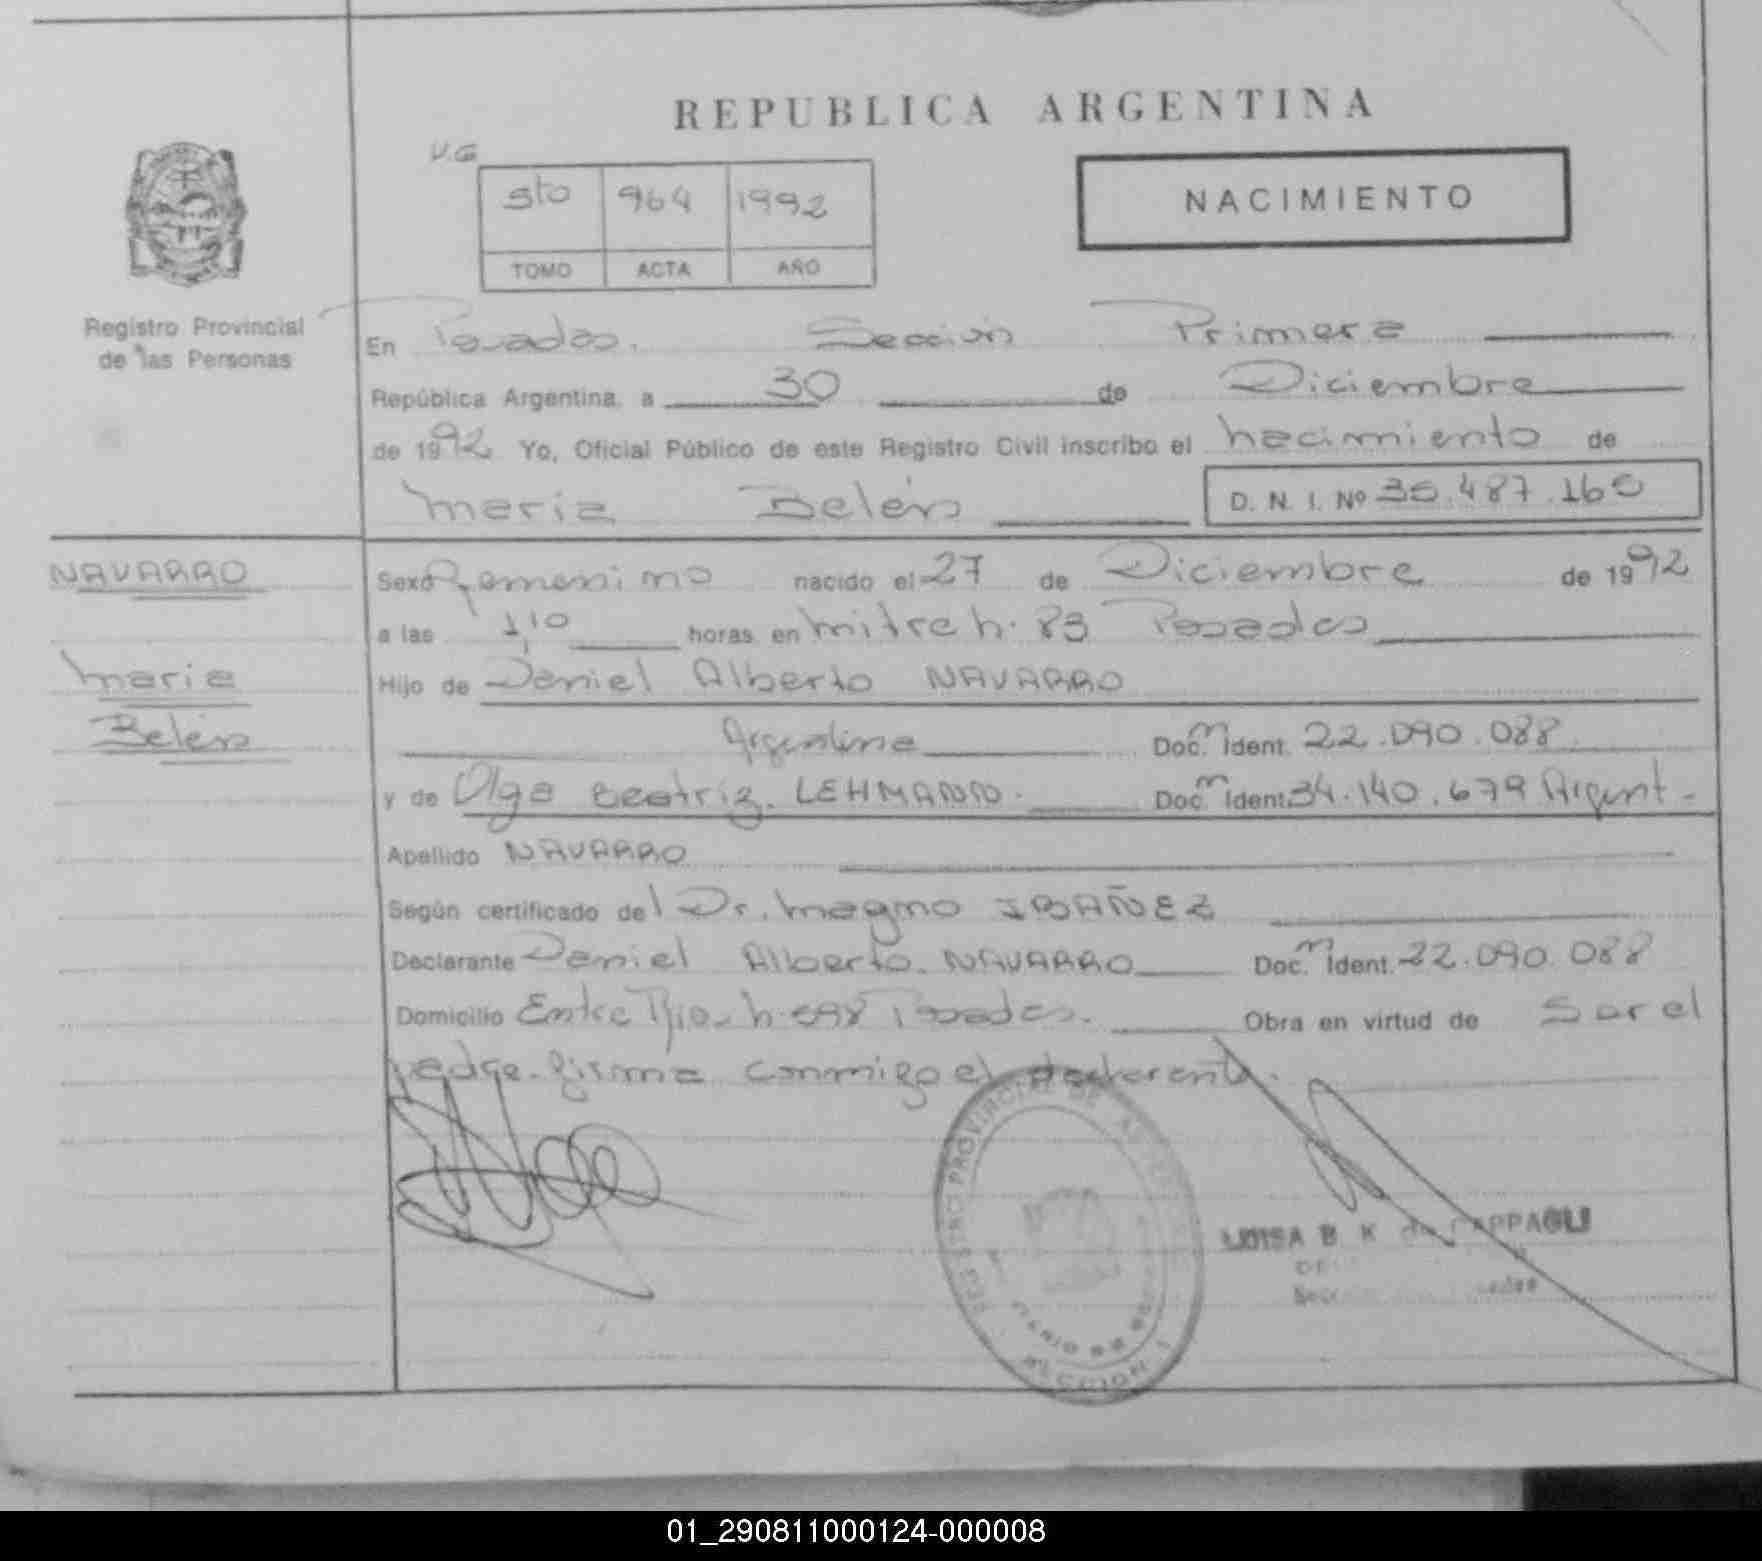 REPUBLICA ARGENTINA
V.G
5to 964 1992
TOMO ACTA AÑO
NACIMIENTO
Registro Provincial
de las Personas
En Posadas. Sección Primera
República Argentina, a 30 de Diciembre
de 1992 Yo, Oficial Público de este Registro Civil inscribo el nacimiento de
Maria Belén D. N. I. Nº 35.487.166
NAVARRO
Maria
Belén
Sexo Femenino nacido el 27 de Diciembre de 1992
a las 1,10 horas en Mitre h. 83 Posadas
Hijo de Daniel Alberto NAVARRO
Argentina Doc. Ident. 22.090.088
y de Olga Beatriz. LEHMANN. Doc. Ident. 34.140.679 Argent.
Apellido NAVARRO
Según certificado del Dr. Magno IBAÑEZ
Declarante Daniel Alberto. NAVARRO Doc. Ident. 22.090.088
Domicilio Entre Rios h. 598 Posadas. Obra en virtud de Ser el
padre. firma conmigo el declarante.
REGISTRO PROVINCIAL DE
SECCION 1
LUISA B K de CAPPAGLI
01_290811000124-000008